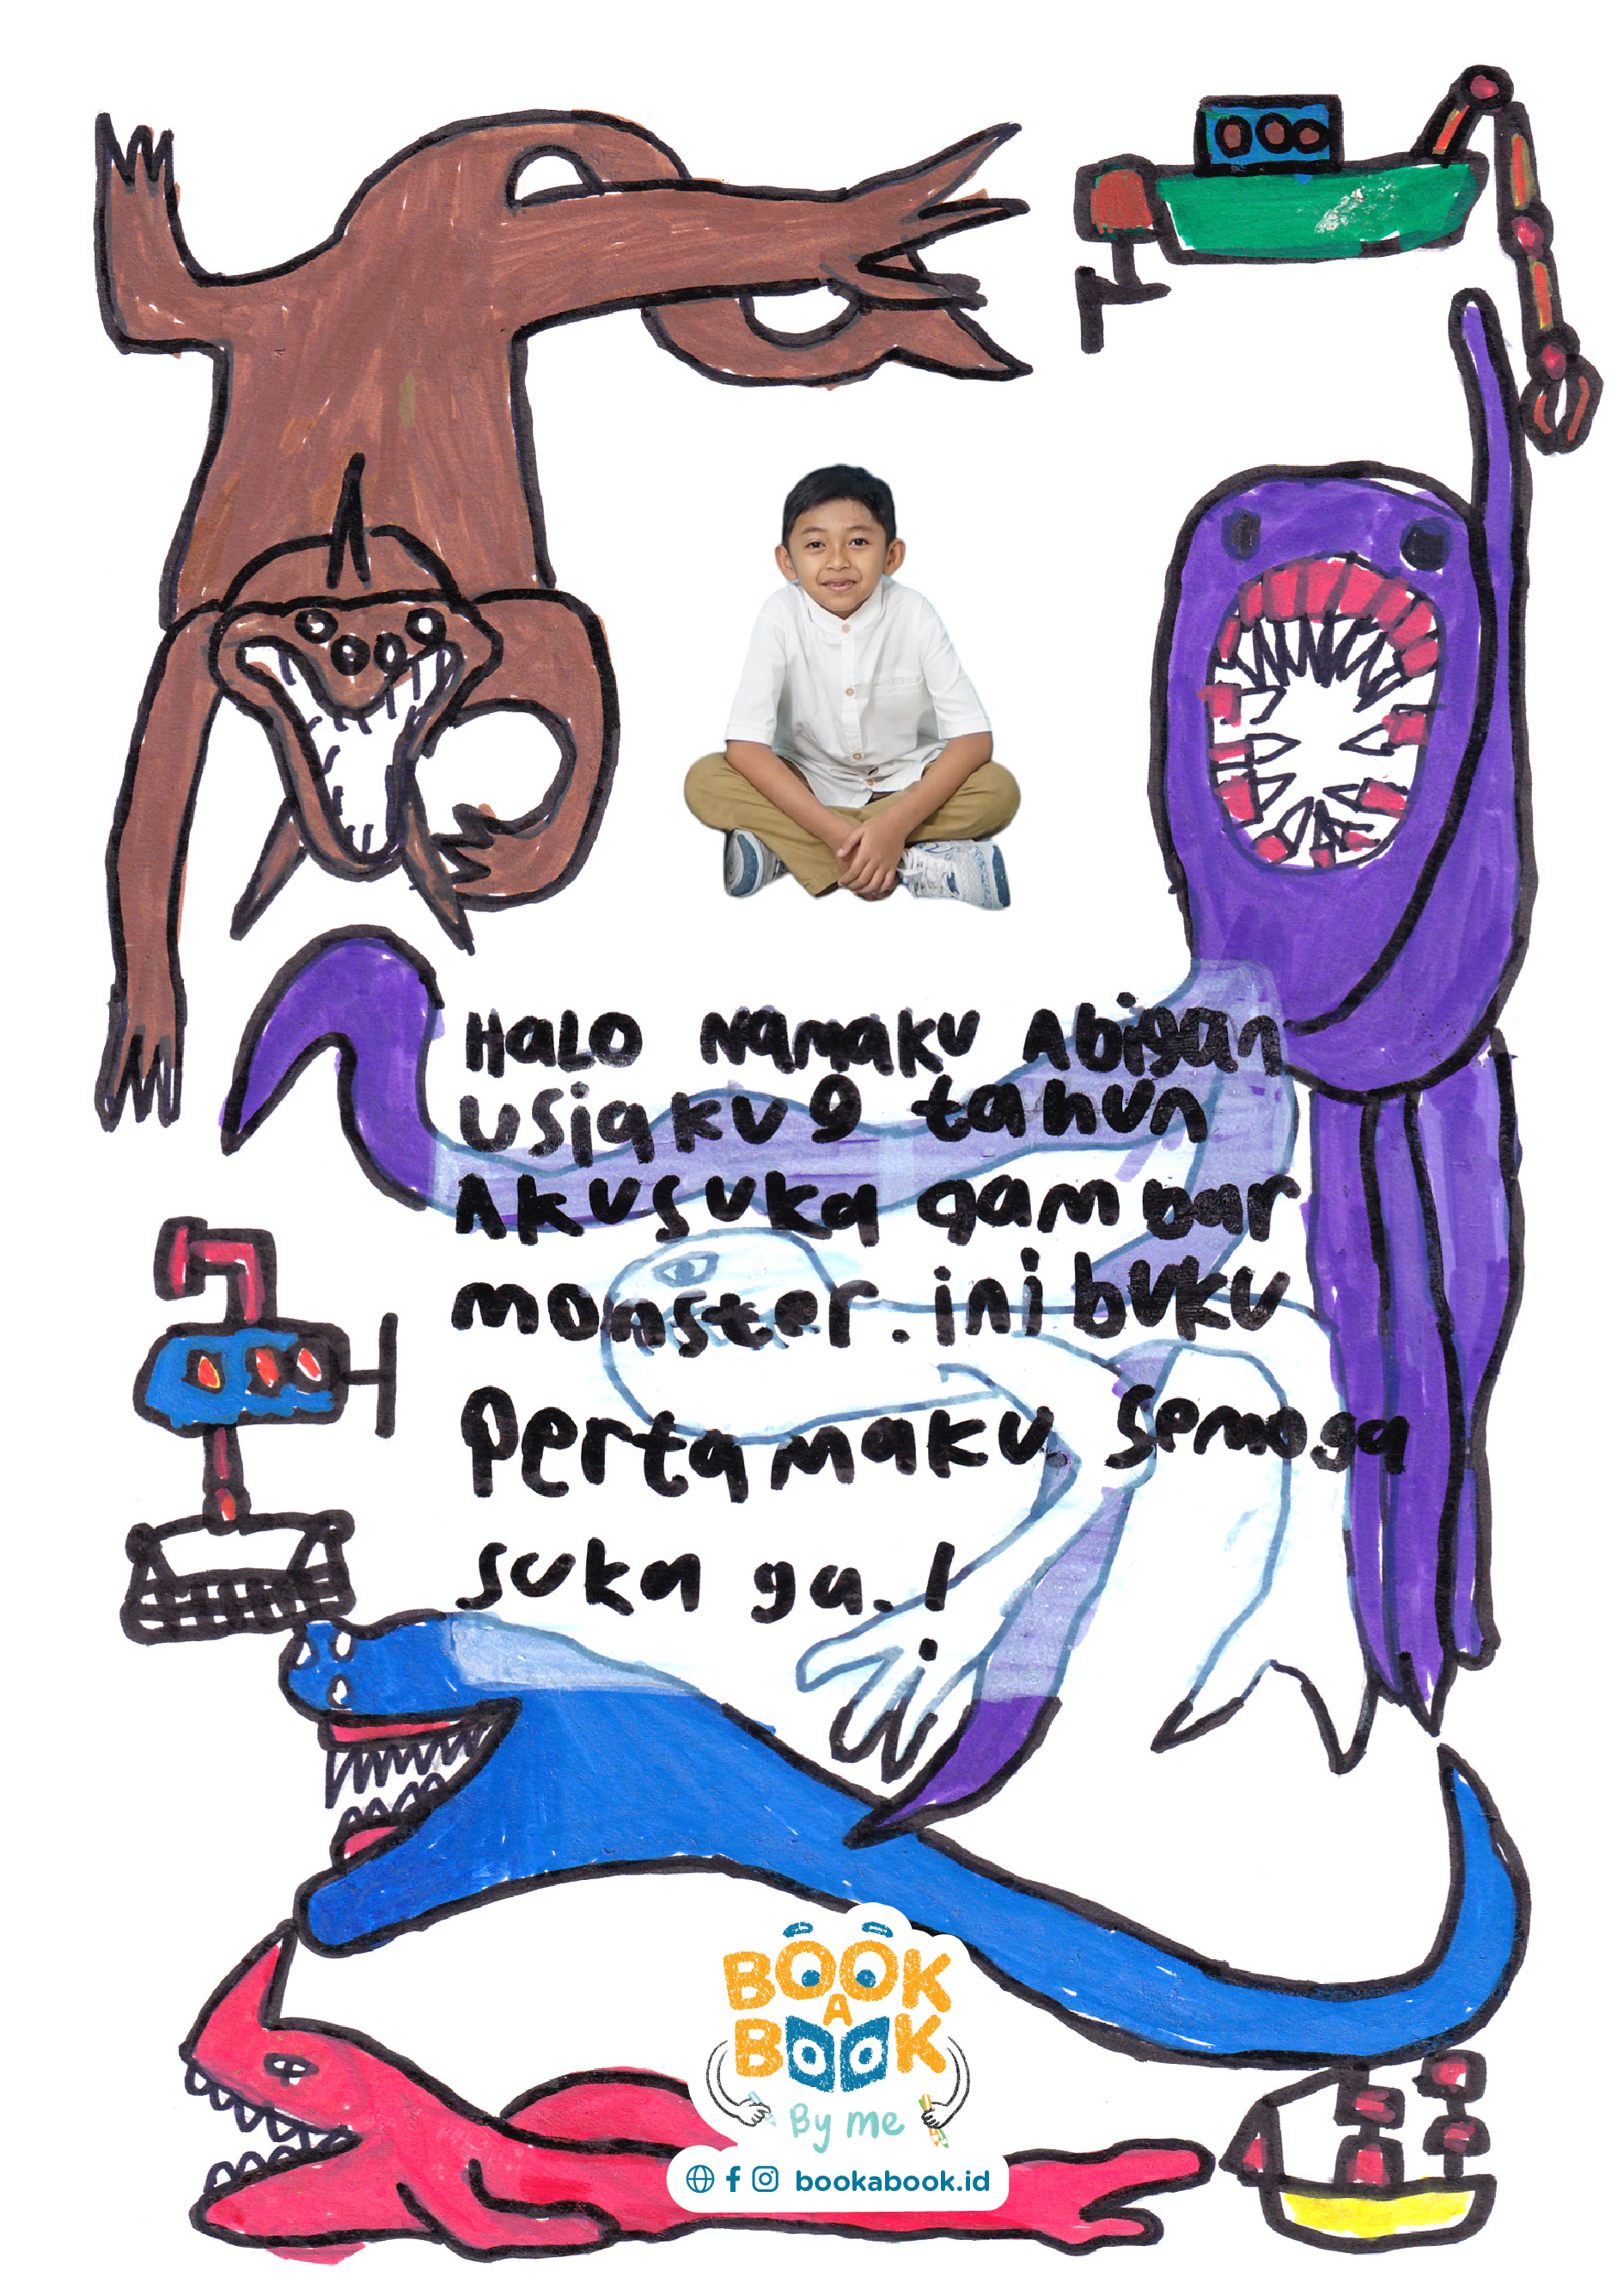 HaLO Namaku Abigan
usiaku 9 tahun
Akusuka gambar
monster. ini buku
Pertamaku. Semoga
suka ya.!
BOOK
A
BOOK
By me
bookabook.id